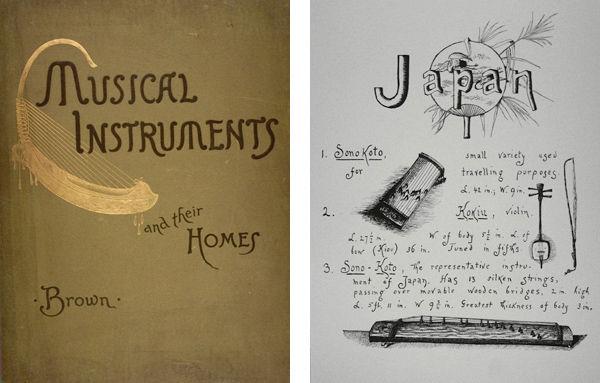 MUSICAL
INSTRUMENTS
and their
HOMES
·Brown·
Japan
1. Sono Koto, small variety used
for travelling purposes.
L. 42 in.; W. 9 in.
2. Kokiu, violin.
L. 27½ in. W of body 5½ in. L. of
bow (Kiou) 36 in. Tuned in fifths.
3. Sono-Koto, The representative instru-
ment of Japan. Has 13 silken strings,
passing over movable wooden bridges, 2 in. high
L. 5 ft. 11 in. W 9¾ in. Greatest thickness of body 3 in.